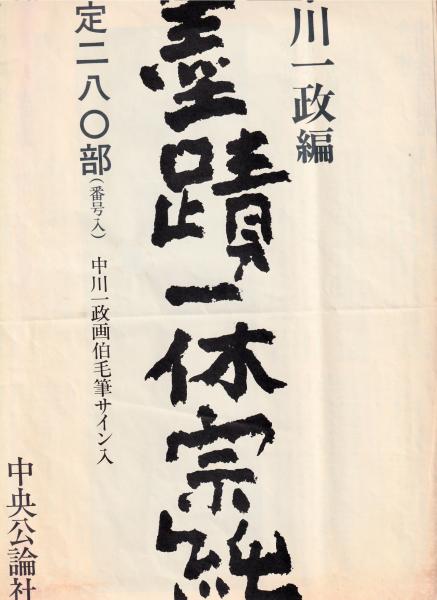 中川一政編
墨蹟一休宗純
定二八〇部（番号入） 中川一政画伯毛筆サイン入
中央公論社